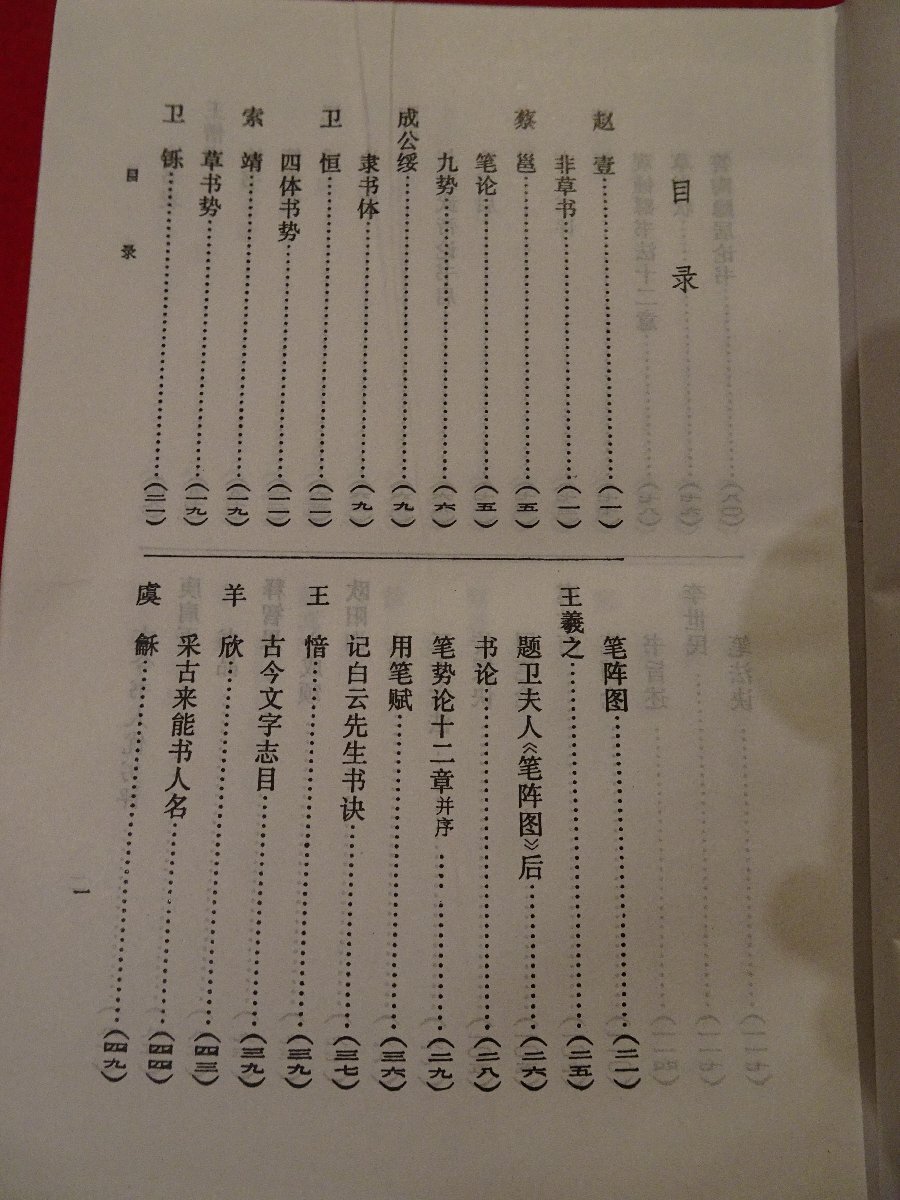 目录
赵壹……(一)
非草书……(一)
蔡邕……(五)
笔论……(五)
九势……(六)
成公绥……(九)
隶书体……(九)
卫恒……(一一)
四体书势……(一一)
索靖……(一九)
草书势……(一九)
卫铄……(二一)
笔阵图……(二一)
王羲之……(二五)
题卫夫人《笔阵图》后……(二六)
书论……(二八)
笔势论十二章并序……(二九)
用笔赋……(三六)
记白云先生书诀……(三七)
王愔……(三九)
古今文字志目……(三九)
羊欣……(四三)
采古来能书人名……(四四)
虞龢……(四九)
目录
一